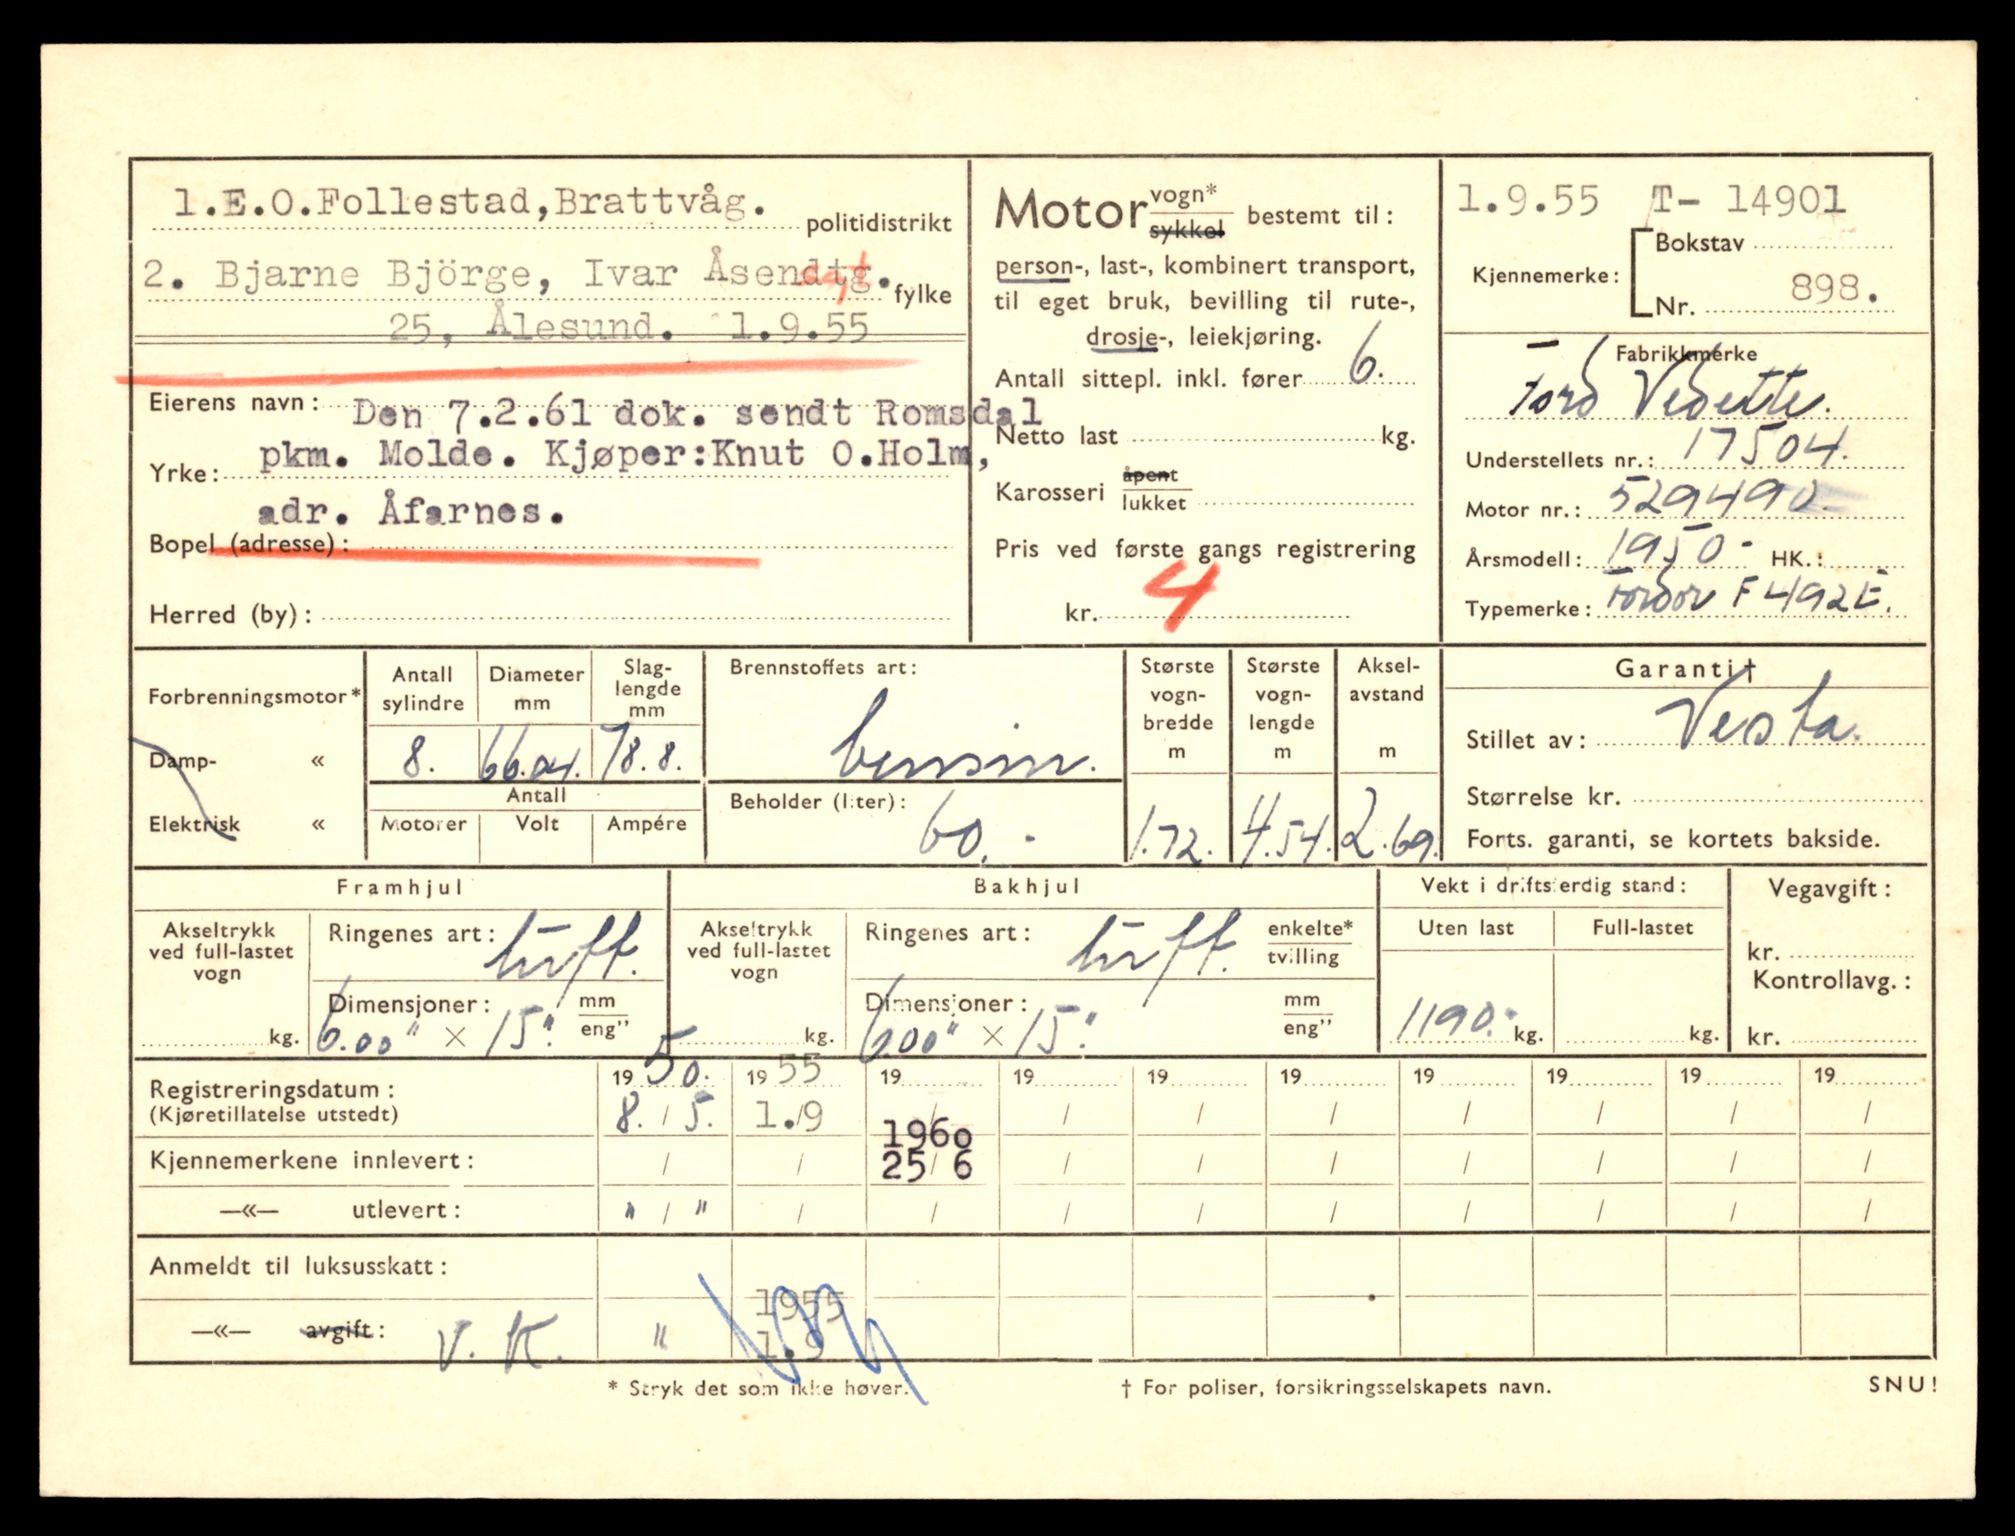 1.E.O.Follestad,Brattvåg.
politidistrikt
2. Bjarne Björge, Ivar Åsendtg.
fylke
25, Ålesund. 1.9.55
Eierens navn: Den 7.2.61 dok. sendt Romsdal
Yrke: pkm. Molde. Kjøper:Knut O.Holm,
adr. Åfarnes.
Bopel (adresse):
Herred (by):
Motor vogn* sykkel bestemt til:
person-, last-, kombinert transport,
til eget bruk, bevilling til rute-,
drosje-, leiekjøring.
Antall sittepl. inkl. fører 6.
Netto last kg.
Karosseri åpent lukket
Pris ved første gangs registrering
kr. 4
1.9.55 T- 14901
Bokstav
Kjennemerke:
Nr. 898.
Fabrikkmerke
Ford Vedette.
Understellets nr.: 17504.
Motor nr.: 529490
Årsmodell: 1950- HK.:
Typemerke: Fordor F492E.
Forbrenningsmotor*
Damp- «
Elektrisk «
Antall sylindre
Diameter mm
Slag-
lengde
mm
8. 66.04. 78.8.
Antall
Motorer Volt Ampére
Brennstoffets art:
bensin.
Beholder (liter):
60.-
Største
vogn-
bredde
m
1.72.
Største
vogn-
lengde
m
4.54.
Aksel-
avstand
m
2.69.
Garanti†
Stillet av: Vesta.
Størrelse kr.
Forts. garanti, se kortets bakside.
Framhjul
Akseltrykk
ved full-lastet
vogn
kg.
Ringenes art: luft.
Dimensjoner: mm
6.00" × 15". eng"
Bakhjul
Akseltrykk
ved full-lastet
vogn
kg.
Ringenes art: luft. enkelte*
tvilling
Dimensjoner: mm
6.00" × 15". eng"
Vekt i driftsferdig stand:
Uten last Full-lastet
1190.- kg. kg.
Vegavgift:
kr.
Kontrollavg.:
kr.
Registreringsdatum: 1950. 1955 19 19 19 19 19 19 19 19
(Kjøretillatelse utstedt) 8. / 5. 1./9 / / / / / / / /
1960
Kjennemerkene innlevert: / / 25/6 / / / / / / /
—«— utlevert: " / " / / / / / / / / /
Anmeldt til luksusskatt:
1955
—«— avgift: V. K. " 1.9
* Stryk det som ikke høver.
† For poliser, forsikringsselskapets navn.
SNU!